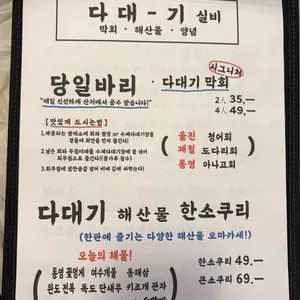 다대-기 실비
막회 · 해산물 · 양념
시그니처
당일바리 · 다대기 막회
"매일 신선하게 산지에서 공수 받습니다!"
2人 35,—
4人 49,—
[맛있게 드시는법]
울진 청어회
제철 도다리회
통영 아나고회
다대기 해산물 한소쿠리
(한판에 즐기는 다양한 해산물 오마카세!)
오늘의 해물!
한소쿠리 49.—
큰소쿠리 69.—
통영 꽃멍게 여수개불 동해삼
완도 전복 독도 단새우 키조개 관자